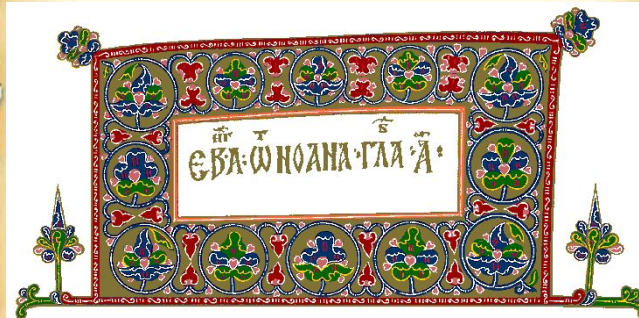 ЄВАⷩⷢ҇ · Ѿ ИОАНА · ГЛАⷡ҇ · А҃ ·